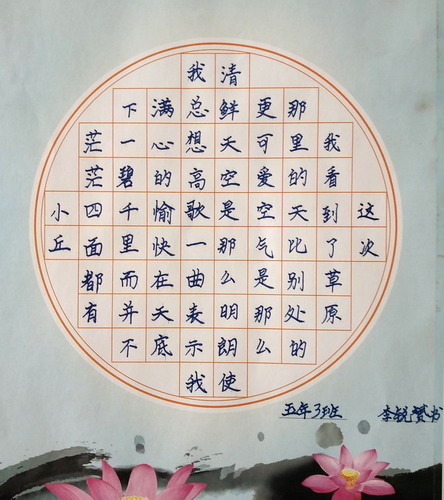 这次
我看到了草原
那里的天比别处的
更可爱空气是那么
清鲜天空是那么明朗使
我总想高歌一曲表示我
满心的愉快在天底
下一碧千里而并不
茫茫四面都有
小丘
五年3班 李锐 书